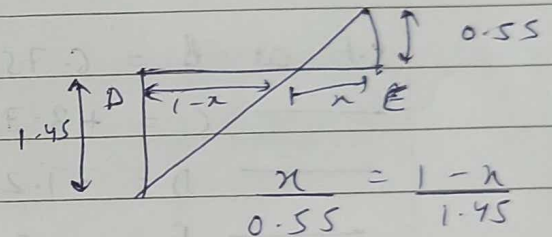 0.55
D 1-x x E
1.45
x/0.55 = 1-x/1.45